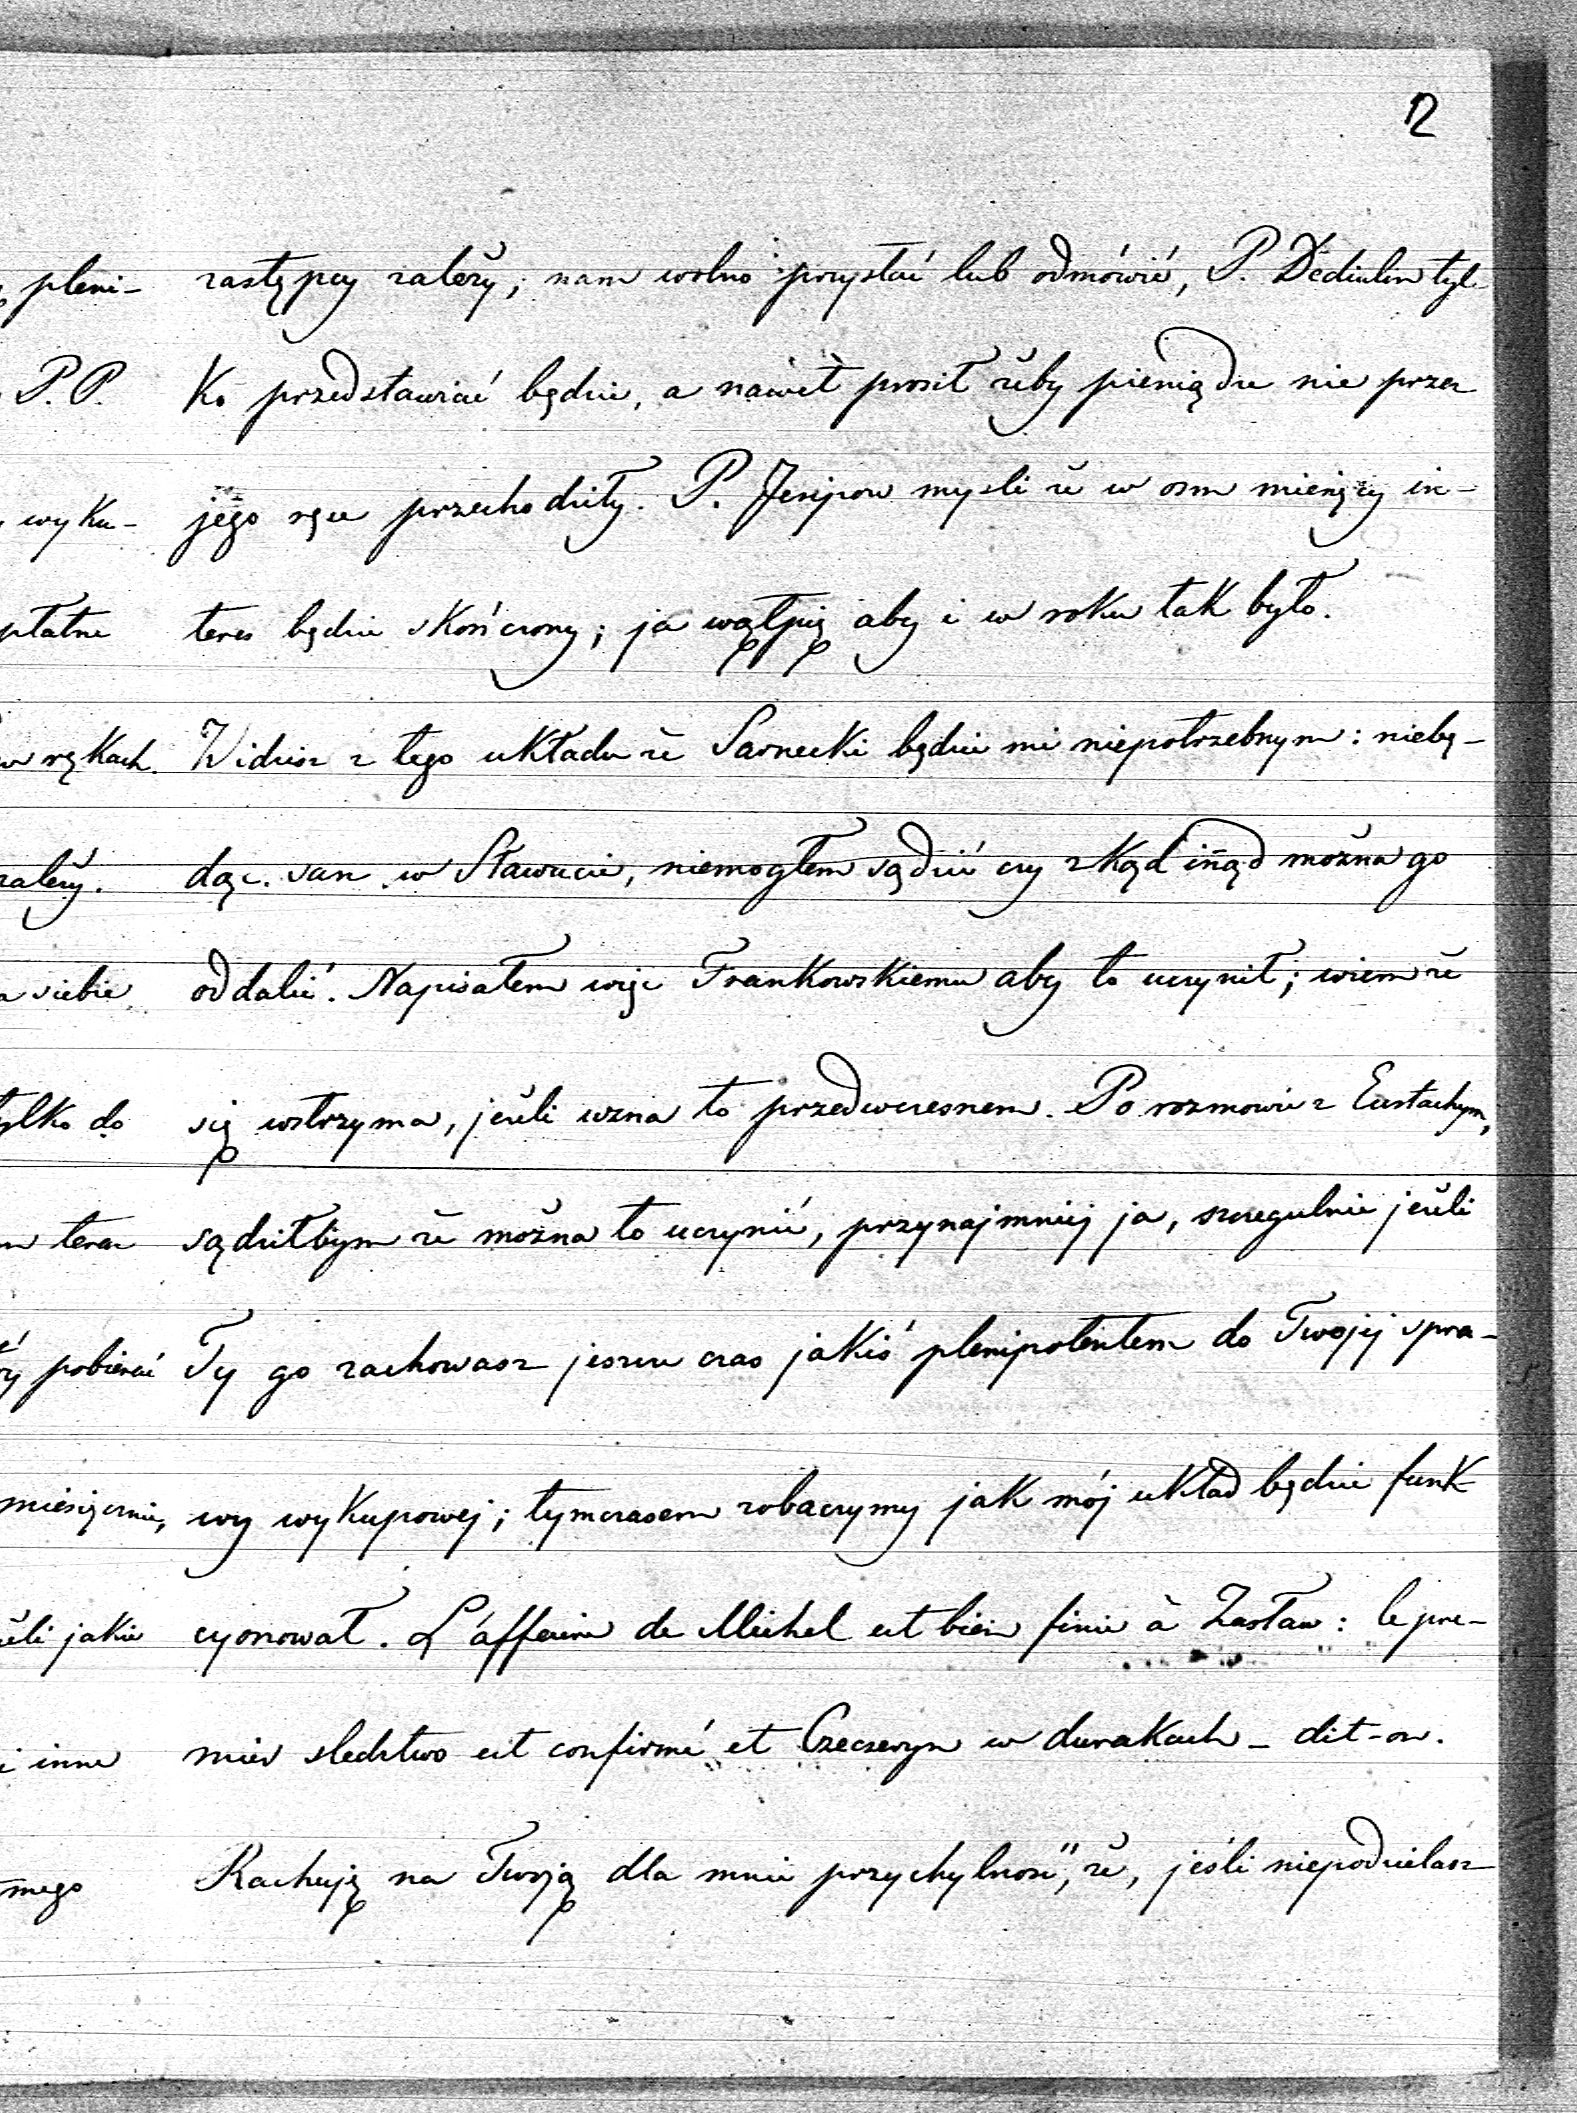 12
zastępcy zależy; nam wolno przystać lub odmówić, P. Dediulin tyl-
ko przedstawiać będzie, a nawet prosił żeby pieniądze nie przez
jego ręce przechodziły. P. Jesipow mysli że w osm miesięcy in-
teres będzie skończony; ja wątpię aby i w roku tak było.
Widzisz z tego układu że Sarnecki będzie mi niepotrzebnym: niebę-
dąc sam w Sławucie, niemogłem sądzić czy zkąd inąd można go
oddalić. Napisałem więc Frankowskiemu aby to uczynił; wiem że
się wstrzyma, jeżeli uzna to przedwczesnem. Po rozmowie z Eustachym,
sądziłbym że można to uczynić, przynajmniej ja, szczegulnie jeżeli
Ty go zachowasz jeszcze czas jakiś plenipotentem do Twojej spra-
wy wykupowej; tymczasem zobaczymy jak mój układ będzie funk-
cyonował. L'affaire de Michel est bien finie à Zasław: le pre-
mier sledztwo est confirmé et Czeczeryn w durakach – dit-on.
Rachuję na Twoją dla mnie przychylność, że, jeśli niepodzielasz
pleni-
P.P.
wyku-
płatne
w rękach.
zależy.
siebie
tylko do
teraz
pobierać
miesięcznie,
jakie
i inne